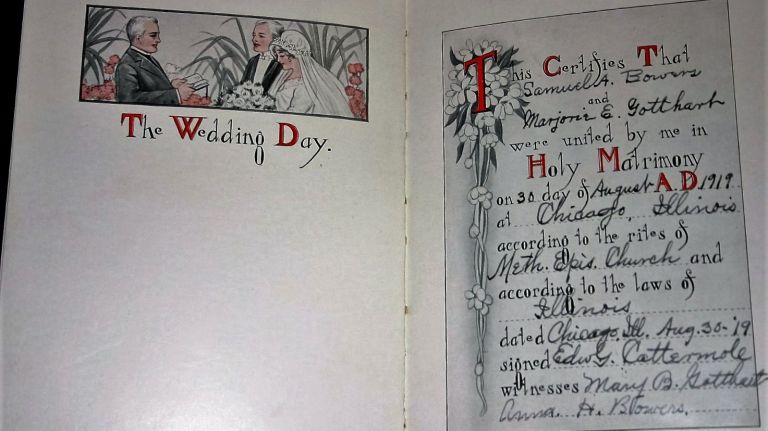 The Wedding Day.
This Certifies That
Samuel A. Bowers
and
Marjorie E. Gotthart
were united by me in
Holy Matrimony
on 30 day of August A.D. 1919
at Chicago, Illinois
according to the rites of
Meth. Epis. Church and
according to the laws of
Illinois
dated Chicago, Ill. Aug. 30-'19
signed Edw. G. Cattermole
witnesses Mary B. Gotthart
Anna H. Blowers,